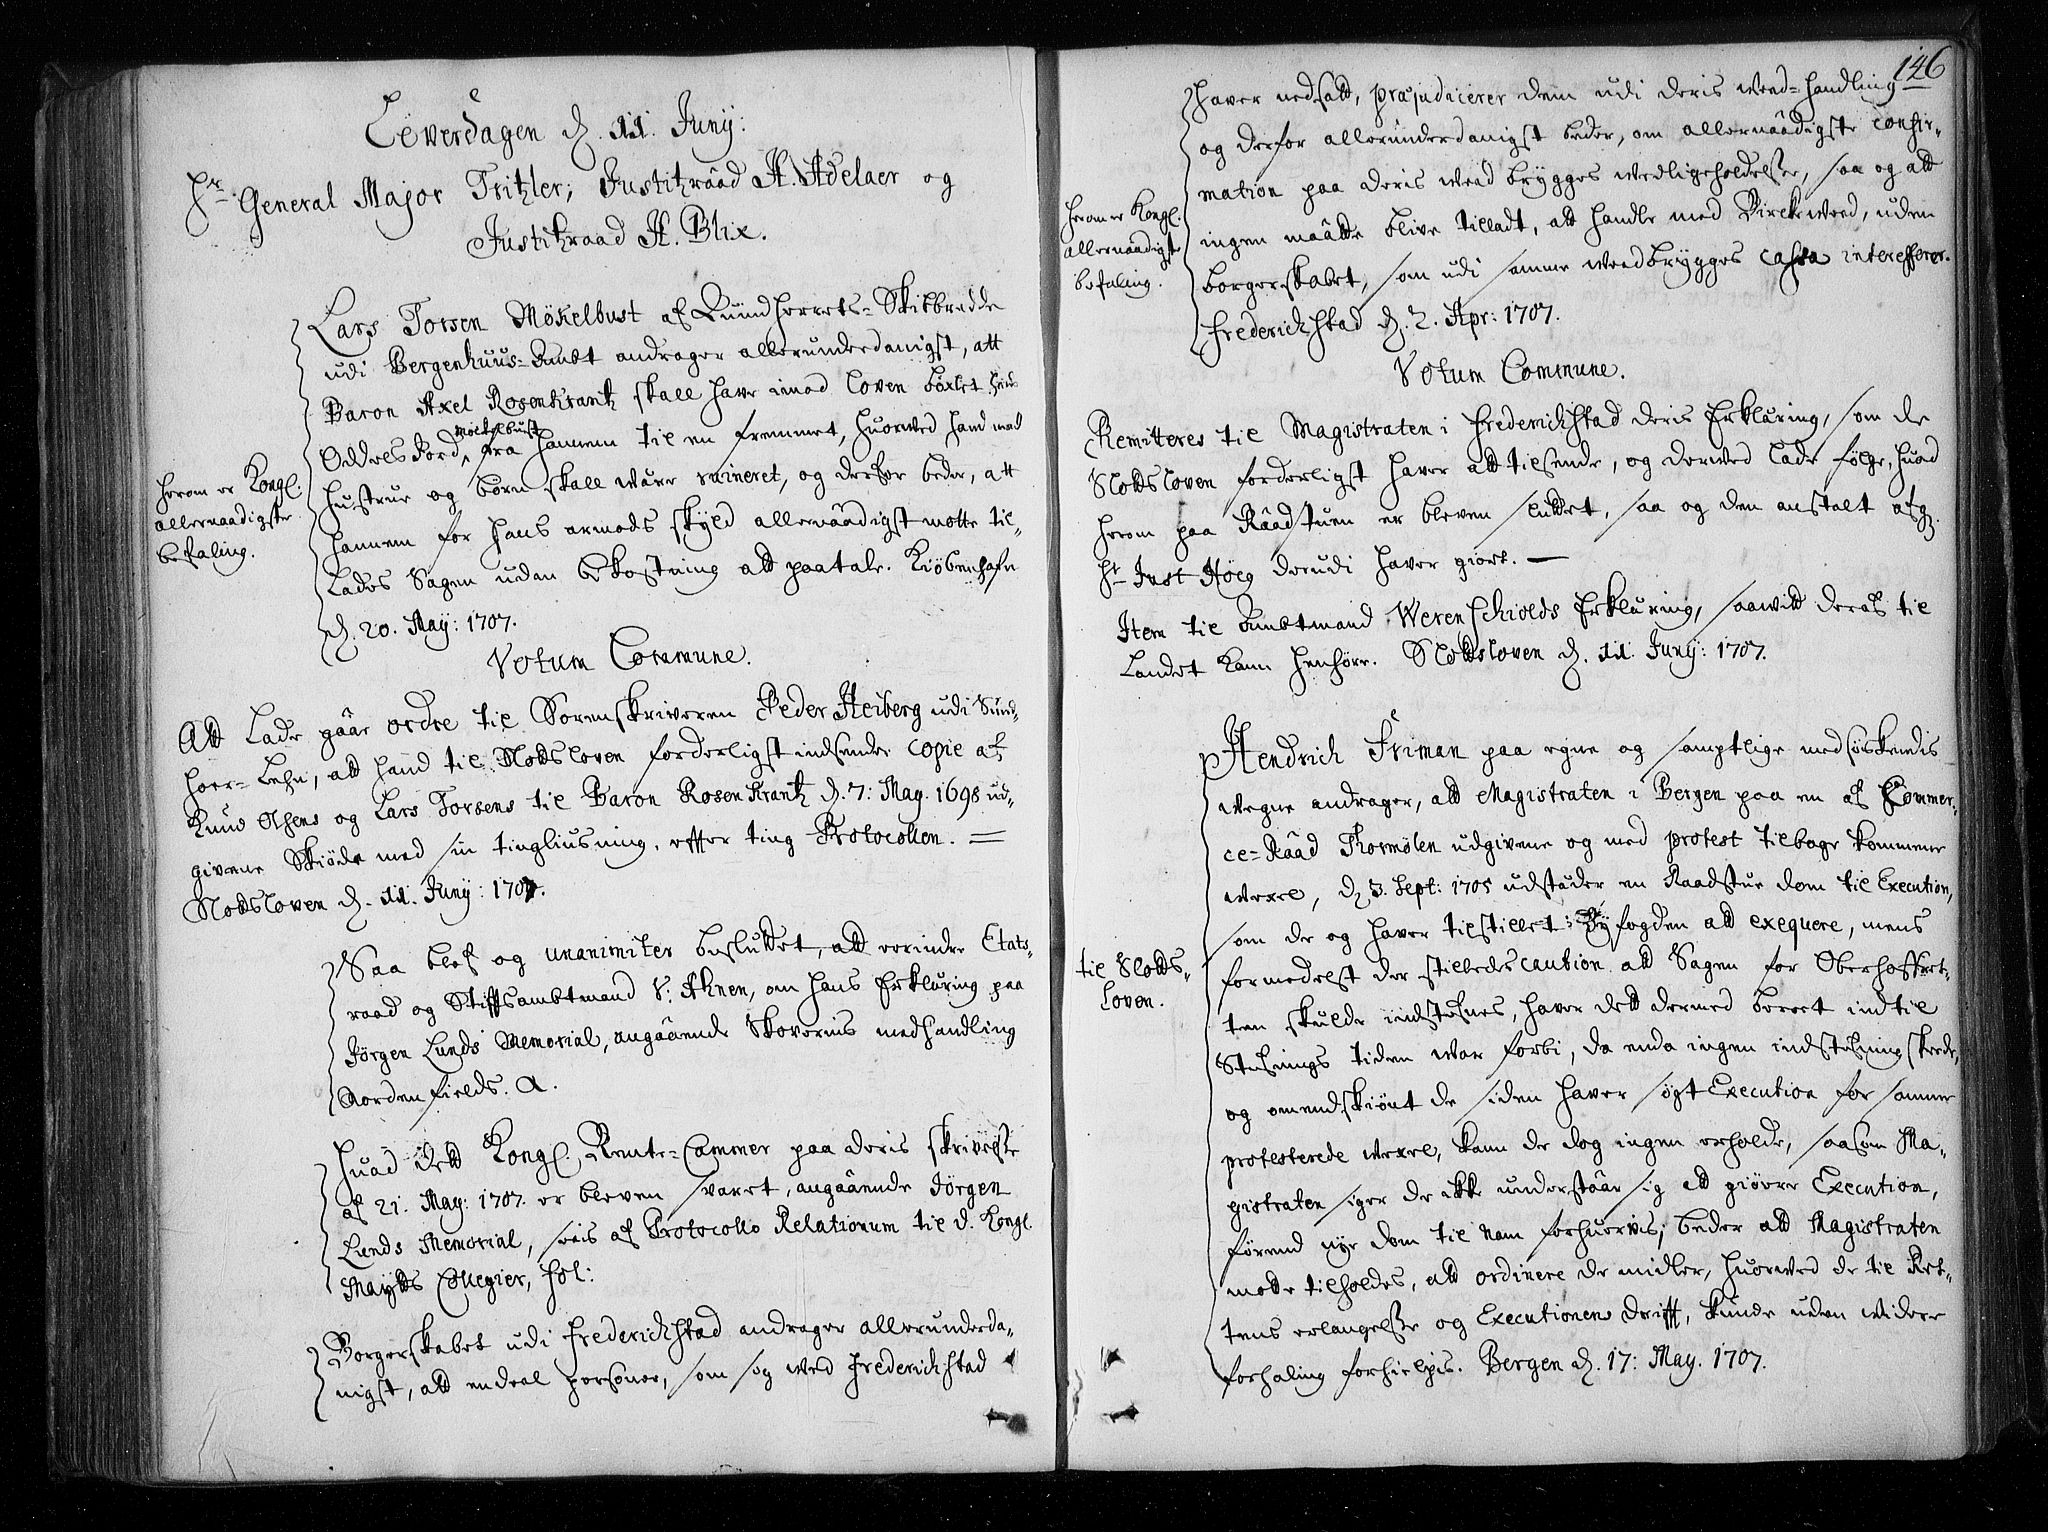 Löverdagen d. 11. Junij:
Hr. General Major Tritzler, Justitzraad H. Adelaer og
Justitzraad H. Blix.
Lars Torsen Mökelbust af Sundhorrets-Skibbredde
udi Bergenhuus-Ambt andrager allerunderdanigst, att
Baron Axel Rosenkrantz skall have imod Loven böxlet hans
Oddelsjord, Möckelbust fra hannem til en fremmet, huorved hand med
hustrue og börn skall være ruineret, og derfor beder, att
hannem for hans armods skyld allernaadigst motte til-
lades Sagen uden bekostning att paatale. Kiöbenhafn
d. 20. May: 1707.
herom er Kongl:
allernaadigste
befaling.
Votum Commune.
Att lade gaae ordre til Sorenskriveren Peder Heiberg udi Sund-
hoer-Lehn, att hand til Slottsloven forderligst indsender copie af
Knud Olsens og Lars Torsens til Baron Rosenkrantz d. 7: May. 1698 ud-
givene Skiöde med sin tingliusning, effter ting Protocollen. =
Slottsloven d. 11. Junij: 1707.
Saa blef og unanimiter besluttet, att erindre Etats-
raad og Stifftsambtmand V: Ahnen, om hans Erklæring paa
Jörgen Lunds Memorial, angaaende Skovernis medhandling
Nordenfields. a.
Huad dett Kongl. Rente-Cammer paa deris skrivelse
af 21. May: 1707. er bleven svaret, angaaende Jörgen
Lunds Memorial, seeis af Protocollo Relationum til d. Kongl.
Maytts Collegier, fol:
Borgerskabet udi Frederichstad andrager allerunderda-
nigst, att endeel personer, som sig ved Frederichstad
146
haver nedsatt, præjudicerer dem udi deris veed-handling
og derfor allerunderdanigst beder, om allernaadigste confir-
mation paa deris veed brygges vedligeholdelse, saa og att
ingen maatte blive tilladt, att handle med Bircke veed, uden
borgerskabet, som udi samme veedbrygges cassa interesserer.
Frederichstad d. 2. Apr: 1707.
herom er Kongl:
allernaadigste
befaling.
Votum Commune.
Remitteres til Magistraten i Frederichstad deris Erklæring, som de
Slottsloven forderligst haver att tilsende, og derved lade fölge, huad
herom paa Raadstuen er bleven sluttet, saa og den anstalt afg.
Hr Just Höeg derudi haver giort. —
Item til Ambtmand Werenschiolds Erklæring, saavitt deraf til
Landet kann henhöre. Slottsloven d. 11. Junij: 1707.
Hendrich Friman paa egne og samptlige medsöskendis
vegne andrager, att Magistraten i Bergen paa en af Commer-
ce-Raad Thormölen udgivene og med protest tilbage kommene
vexel, d. 3. Sept: 1705 udstæder en Raadstue dom til Execution,
som de og haver tilstillet Byfogden att exequere, mens
formedelst der stilledes caution att Sagen for Oberhofret-
ten skulde indstefnes, haver dett dermed beroet indtil
Stefnings tiden var forbi, da enda ingen indstefning skeede,
og omendskiönt de siden haver sögt Execution for samme
protesterede vexel, kann de dog ingen erholde, saasom Ma-
gistraten siger de ikke understaar sig att giöre Execution,
förend nye dom til Nam forhuervis; beder att Magistraten
motte tilholdes, att ordinere de midler, huorved de til Ret-
tens erlangelse og Executionens drifft, kunde uden videre
forhaling forhielpis. Bergen d. 17: May. 1707.
til Slotts-
Loven.